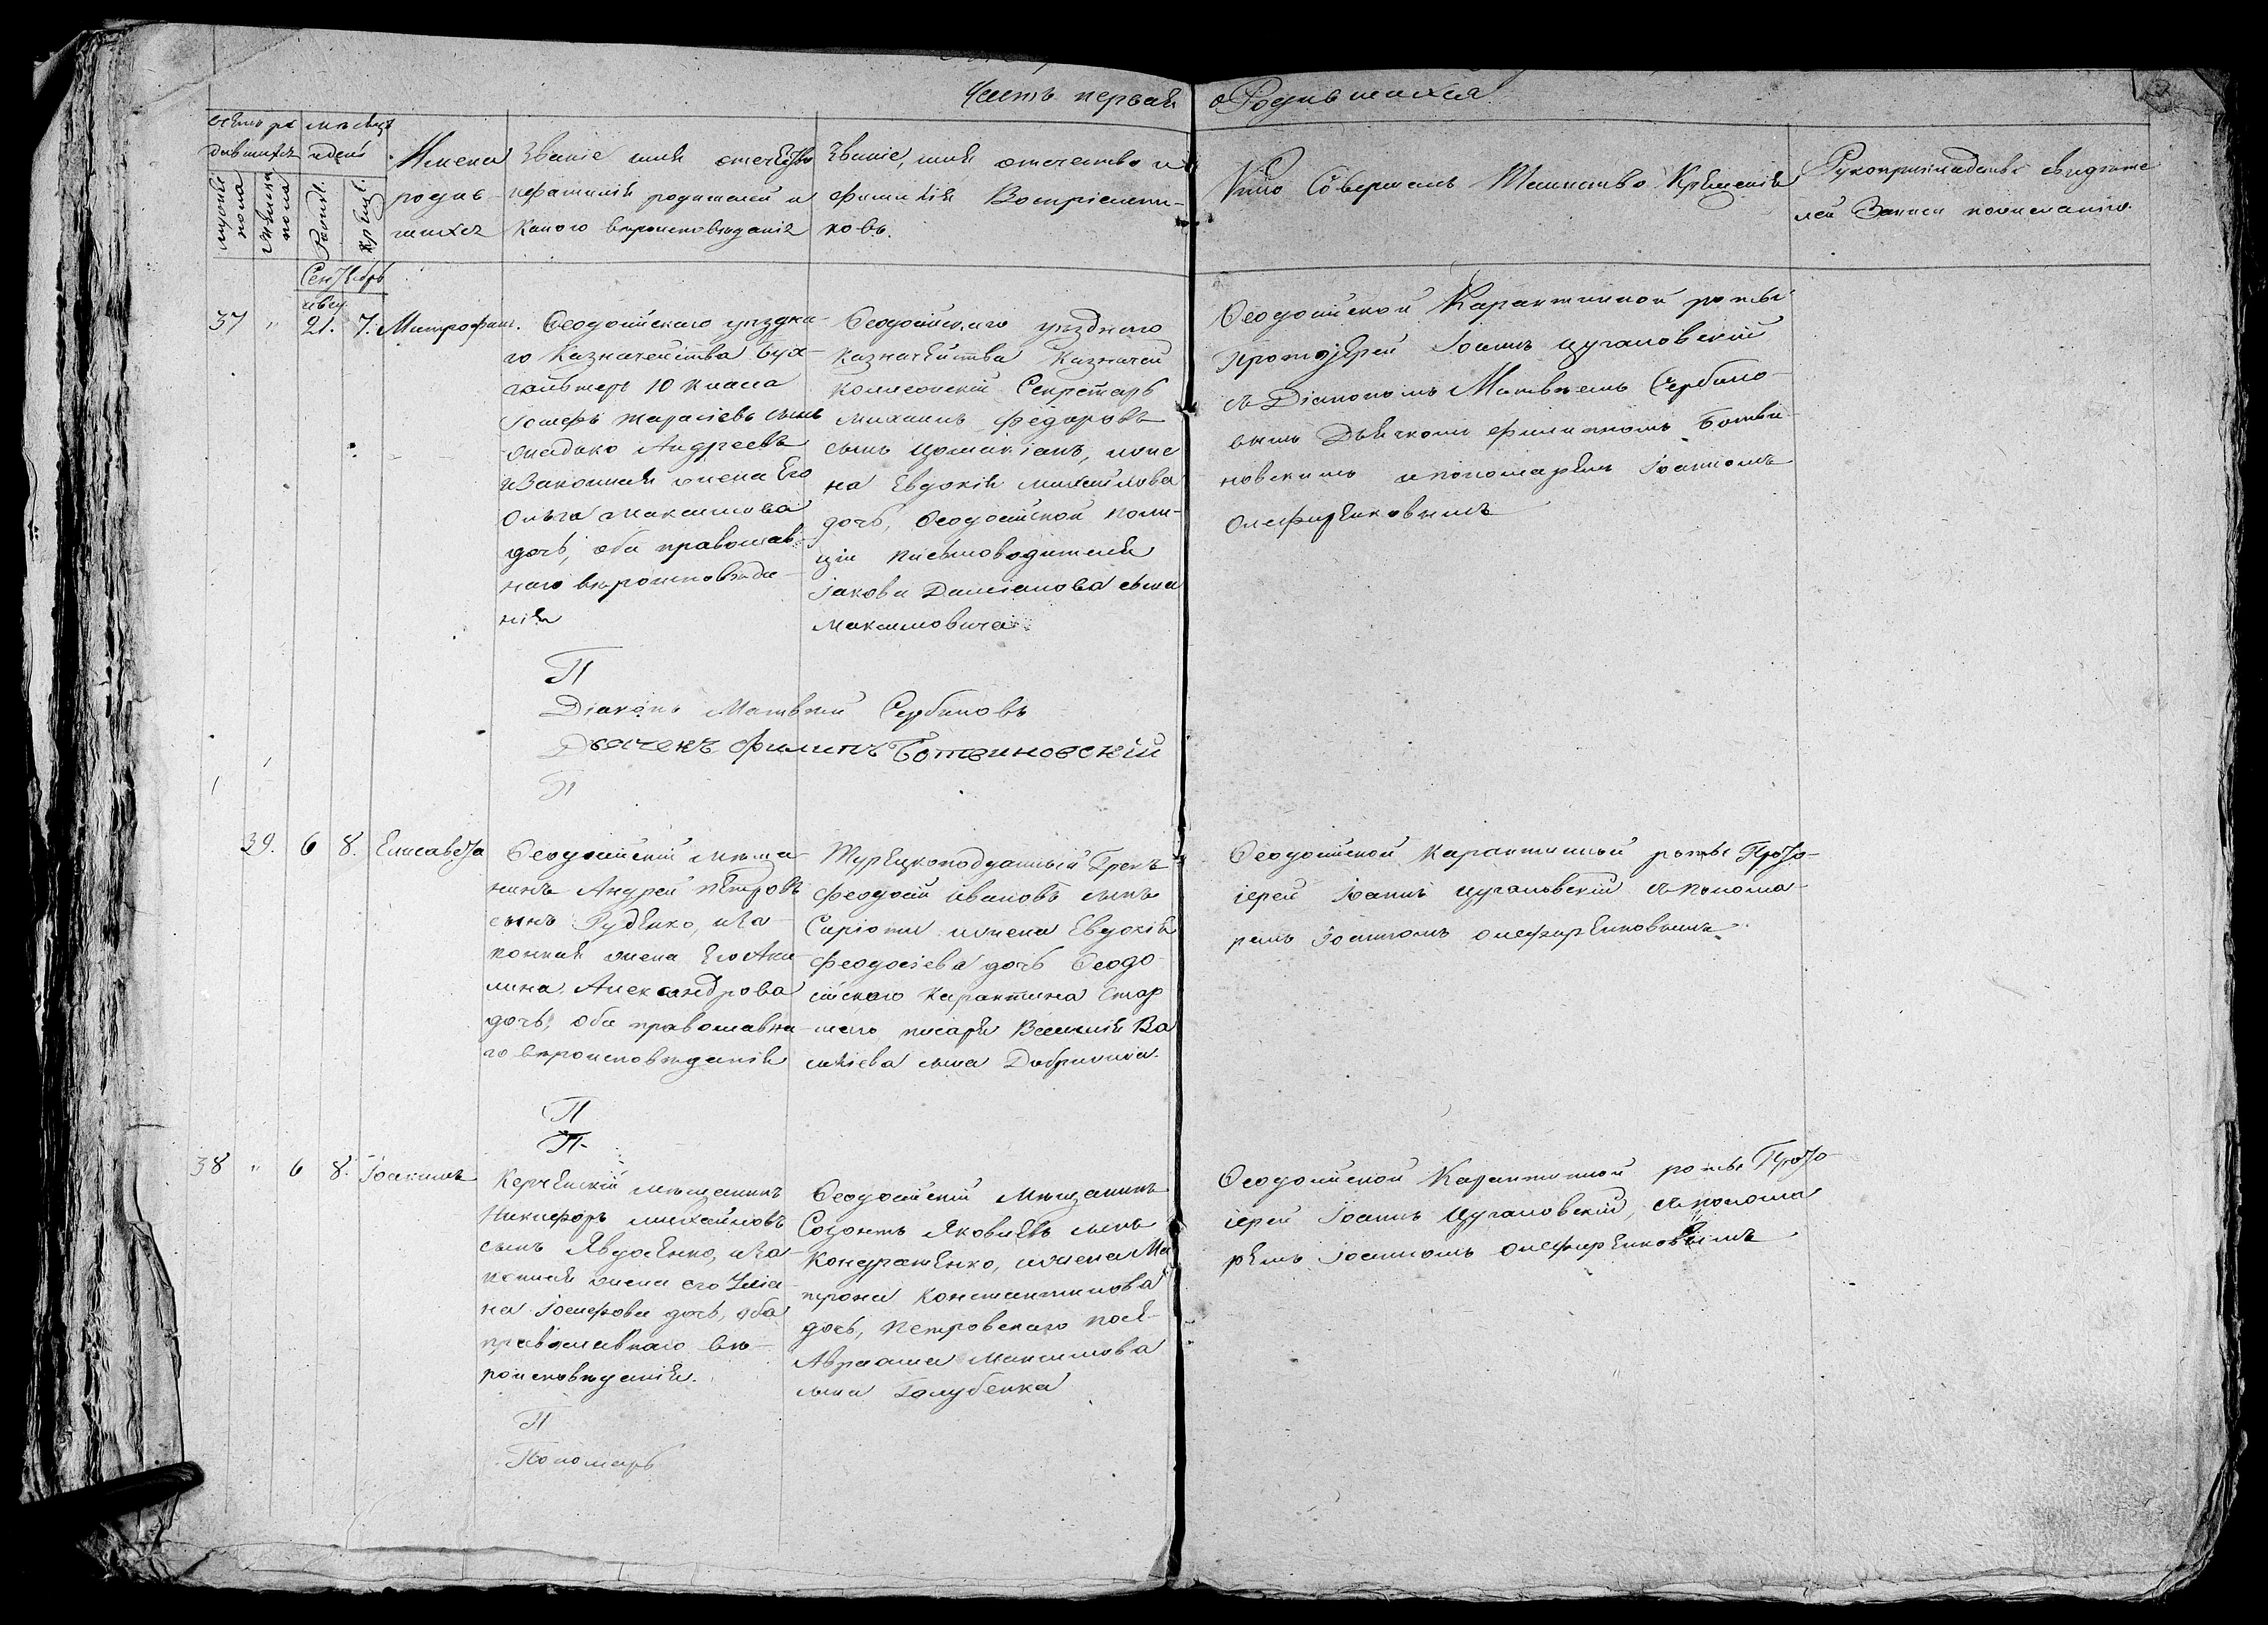 Часть первая о Родившихся
Счетъ ро
дившихся
мужеска
пола
женска
пола
месяцъ
и день
Рожд.
Крещ.
Имена
родив-
шихся
Званіе имя отечество
и фамилія родителей и
какого вероисповеданія
Званіе, имя отечество и
фамилія Воспріемни-
ковъ.
Кто Совершалъ Таинство Крещенія
Рукоприкладство свидете
лей Записи по желанію
Сентябрь
авгу.
37 " 21. 7. Митрофанъ.
Ѳеодосійскаго уездна-
го Казначейства бух-
галтеръ 10 класа
Іосифъ Тарасіевъ сынъ
Андреевъ
и Законная жена Его
Ольга Максимова
дочь, оба православ-
наго вероисповеда-
нія
Ѳеодосійскаго уезднаго
казначейства Казначей
Колежскій Секретарь
Михаилъ Федоровъ
сынъ, и же
на Евдокія Михайлова
дочь, Ѳеодосійской поли-
ціи письмоводителя
Іакова Даміанова сына
Максимовича
Ѳеодосійской Карантинной роты
протоіерей Іоаннъ Цугановскій
съ Діакономъ Матвеемъ Сербино-
вымъ Дьячкомъ Филипомъ Ботви-
новскимъ и пономаремъ Іоанномъ
Олефиренковымъ
П
Діаконъ Матвей Сербиновъ
Дьячекъ Филипъ Ботвиновскій
П
39. 6 8. Елисавета
Ѳеодосійскій меща-
нинъ Андрей Петровъ
сынъ Руденко, и за-
конная жена Его Аки-
лина Александрова
дочь, оба православна-
го вероисповеданія
Турецкоподданный Грекъ
Феодосій Ивановъ сынъ
Саріоти и жена Евдокія
Феодосіева дочь Ѳеодо-
сійскаго Карантина Стар
шаго писаря Василія Ва
силіева сына
Ѳеодосійской Карантинной роты Прото-
іерей Іоаннъ Цугановскій съ понома-
ремъ Іоанномъ Олефиренковымъ
П
П
38 " 6 8. Іоакимъ
Керченскій мещанинъ
Никифоръ Михайловъ
сынъ Явдосенко, и за-
конная жена его Уліа-
на Іосифова дочь, оба
православнаго ве-
роисповеданія.
Ѳеодосійскій Мещанинъ
Созонтъ Яковлевъ сынъ
Кондратенко, и жена Ма
трона Константинова
дочь, Петровскаго
Авраама Максимова
сына Голубенка
Ѳеодосійской Карантинной роты Прото-
іерей Іоаннъ Цугановскій, съ понома
ремъ Іоанномъ Олефиренковымъ
П
Пономарь